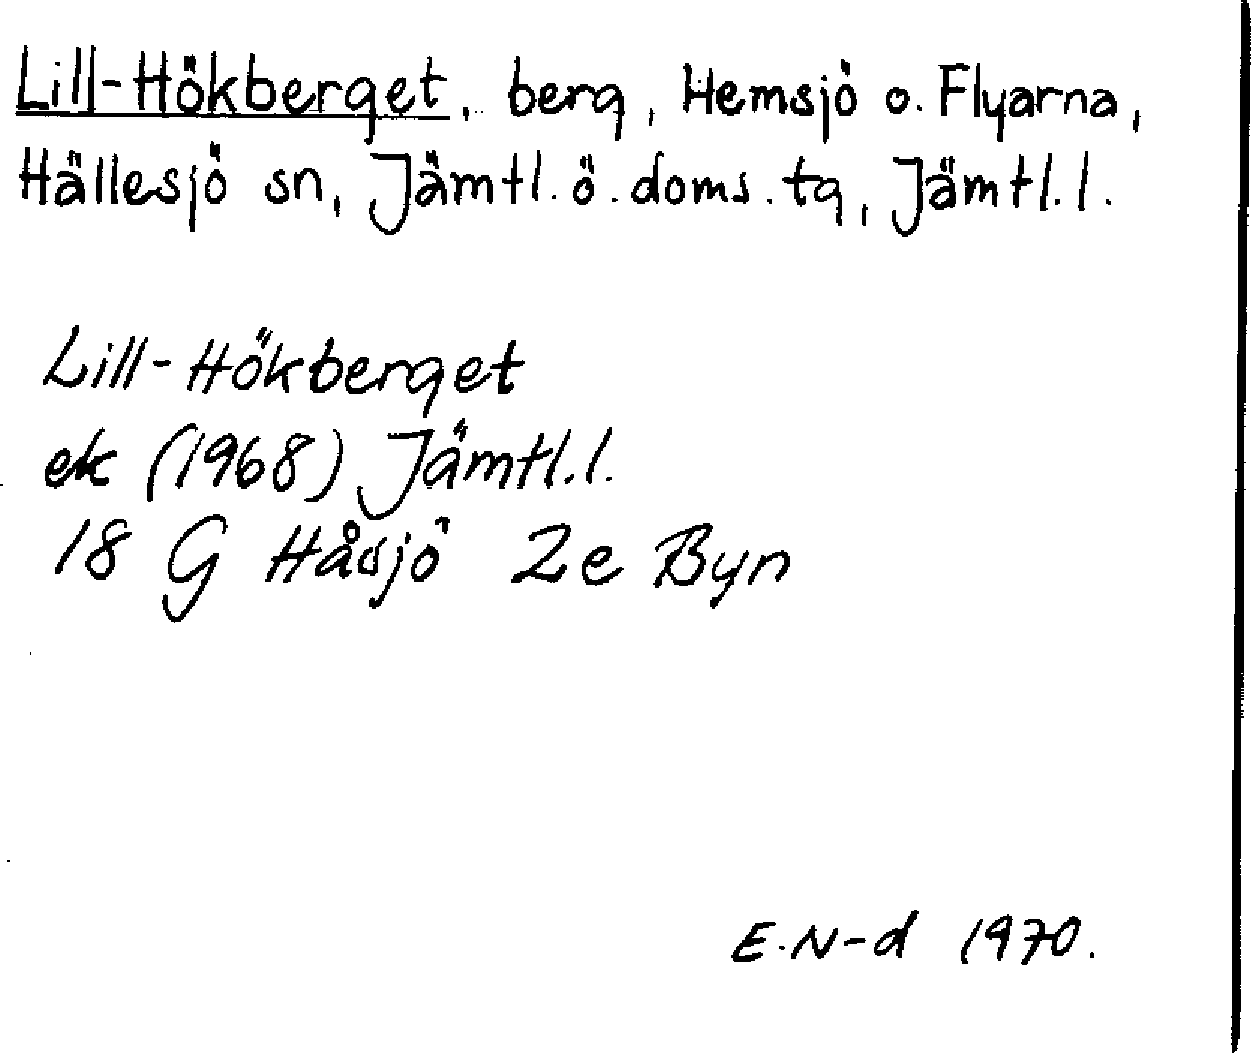 Lill-Hökberget, berg, Hemsjö o. Flyarna,
Hällesjö sn, Jämtl. ö. doms. tg, Jämtl. l.
Lill-Hökberget
ek (1968) Jämtl. l.
18 G Håsjö 2e Byn
E. N-d 1970.